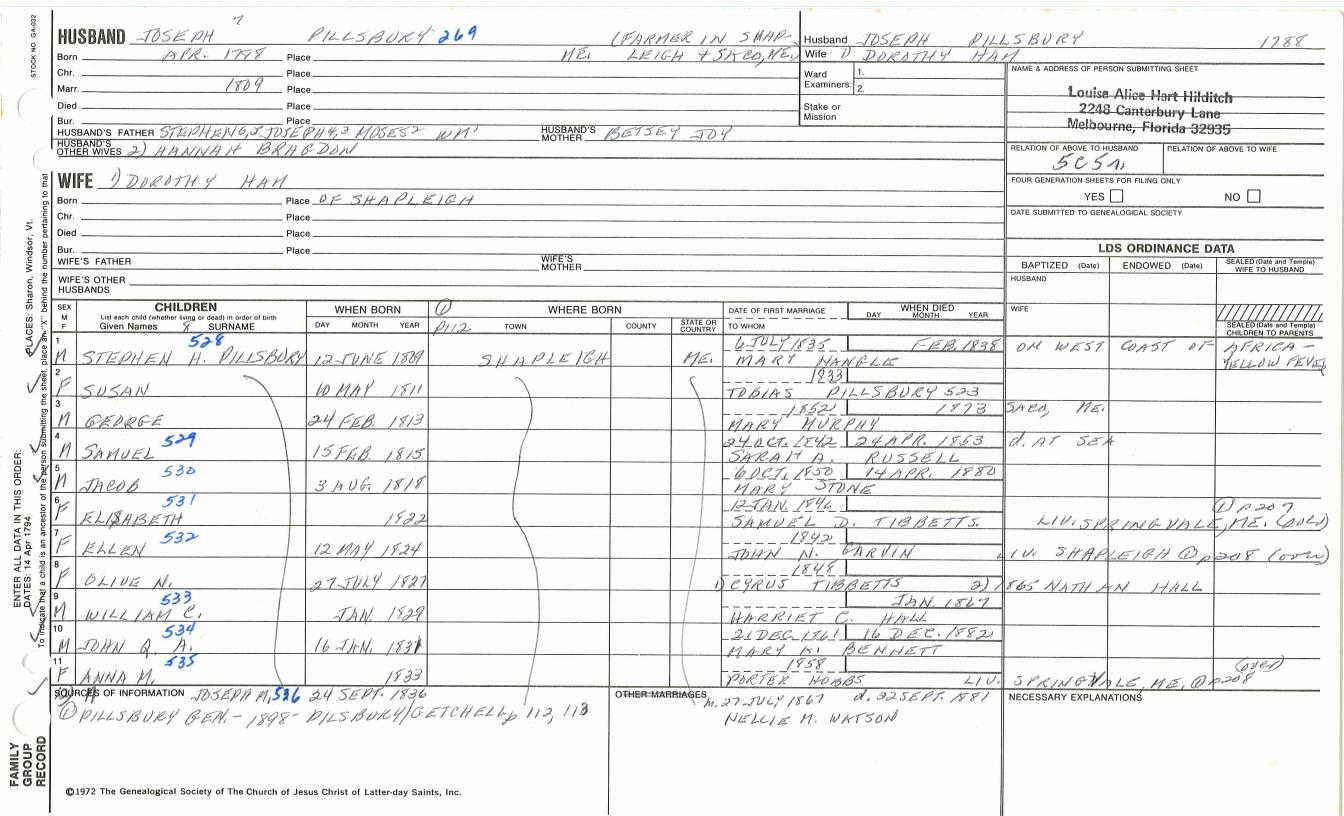 STOCK NO. GA-032
7
HUSBAND JOSEPH PILLSBURY 269 (FARMER IN SHAP-
Born APR. 1788 Place ME. LEIGH + SACO, ME.)
Chr. Place
Marr. 1809 Place
Died Place
Bur. Place
HUSBAND'S FATHER STEPHEN6, JOSEPH4,3 MOSES2 WM1 HUSBAND'S MOTHER BETSEY JOY
HUSBAND'S OTHER WIVES 2) HANNAH BRAGDON
Husband JOSEPH PILLSBURY 1788
Wife 1) DOROTHY HAM
Ward Examiners: 1.
2.
Stake or Mission
NAME & ADDRESS OF PERSON SUBMITTING SHEET
Louise Alice Hart Hilditch
2248 Canterbury Lane
Melbourne, Florida 32935
RELATION OF ABOVE TO HUSBAND RELATION OF ABOVE TO WIFE
5C5r.
FOUR GENERATION SHEETS FOR FILING ONLY
YES NO
DATE SUBMITTED TO GENEALOGICAL SOCIETY
WIFE 1) DOROTHY HAM
Born Place OF SHAPLEIGH
Chr. Place
Died Place
Bur. Place
WIFE'S FATHER WIFE'S MOTHER
WIFE'S OTHER HUSBANDS
LDS ORDINANCE DATA
BAPTIZED (Date) ENDOWED (Date) SEALED (Date and Temple) WIFE TO HUSBAND
HUSBAND
WIFE
SEALED (Date and Temple) CHILDREN TO PARENTS
SEX M F CHILDREN WHEN BORN ① WHERE BORN DATE OF FIRST MARRIAGE WHEN DIED
List each child (whether living or dead) in order of birth
Given Names & SURNAME DAY MONTH YEAR P112 TOWN COUNTY STATE OR COUNTRY TO WHOM DAY MONTH YEAR
1 528 6 JULY 1835 FEB. 1838 ON WEST COAST OF AFRICA -
M STEPHEN H. PILLSBURY 12 JUNE 1809 SHAPLEIGH ME. MARY NANGLE YELLOW FEVER
2 1833
F SUSAN 10 MAY 1811 TOBIAS PILLSBURY 523
3 1852 1873 SACO, ME.
M GEORGE 24 FEB. 1813 MARY MURPHY
4 529 24 OCT. 1842 24 APR. 1853 d. AT SEA
M SAMUEL 15 FEB. 1815 SARAH A. RUSSELL
5 530 6 OCT. 1850 14 APR. 1880
M JACOB 3 AUG. 1818 MARY STONE
6 531 12 JAN. 1846 ① p207
F ELISABETH 1822 SAMUEL D. TIBBETTS. LIV. SPRINGVALE, ME. (OVER)
7 532 1842
F ELLEN 12 MAY 1824 JOHN N. GARVIN LIV. SHAPLEIGH ① p208 (over)
8 1848
F OLIVE N. 27 JULY 1827 1) CYRUS TIBBETTS 2) 1865 NATHAN HALL
9 533 JAN. 1867
M WILLIAM C. JAN. 1829 HARRIET C. HALL
10 534 21 DEC 1861 16 DEC. 1882
M JOHN Q. A. 16 JAN. 1831 MARY K. BENNETT
11 535 1858 (over)
F ANNA M. 1833 PORTER HOBBS LIV. SPRINGVALE, ME. ① p208
SOURCES OF INFORMATION JOSEPH M. 536 24 SEPT. 1836 OTHER MARRIAGES m. 27 JULY 1867 d. 22 SEPT. 1881 NECESSARY EXPLANATIONS
① PILLSBURY GEN. - 1898 - PILSBURY/GETCHELL p 112, 113 NELLIE M. WATSON
©1972 The Genealogical Society of The Church of Jesus Christ of Latter-day Saints, Inc.
FAMILY GROUP RECORD
ENTER ALL DATA IN THIS ORDER:
DATES: 14 Apr 1794
PLACES: Sharon, Windsor, Vt.
To indicate that a child is an ancestor of the person submitting the sheet, place an "X" behind the number pertaining to that